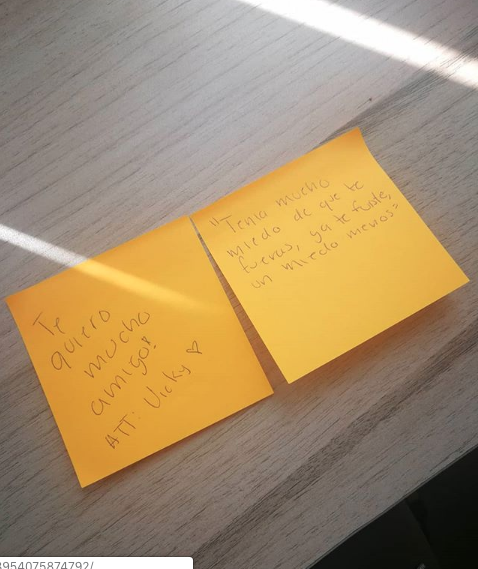 Te
quiero
mucho
amigo!
ATT: Vicky ♡
"Tenia mucho
miedo de que te
fueras, ya te fuiste,
un miedo menos"
3954075874792/